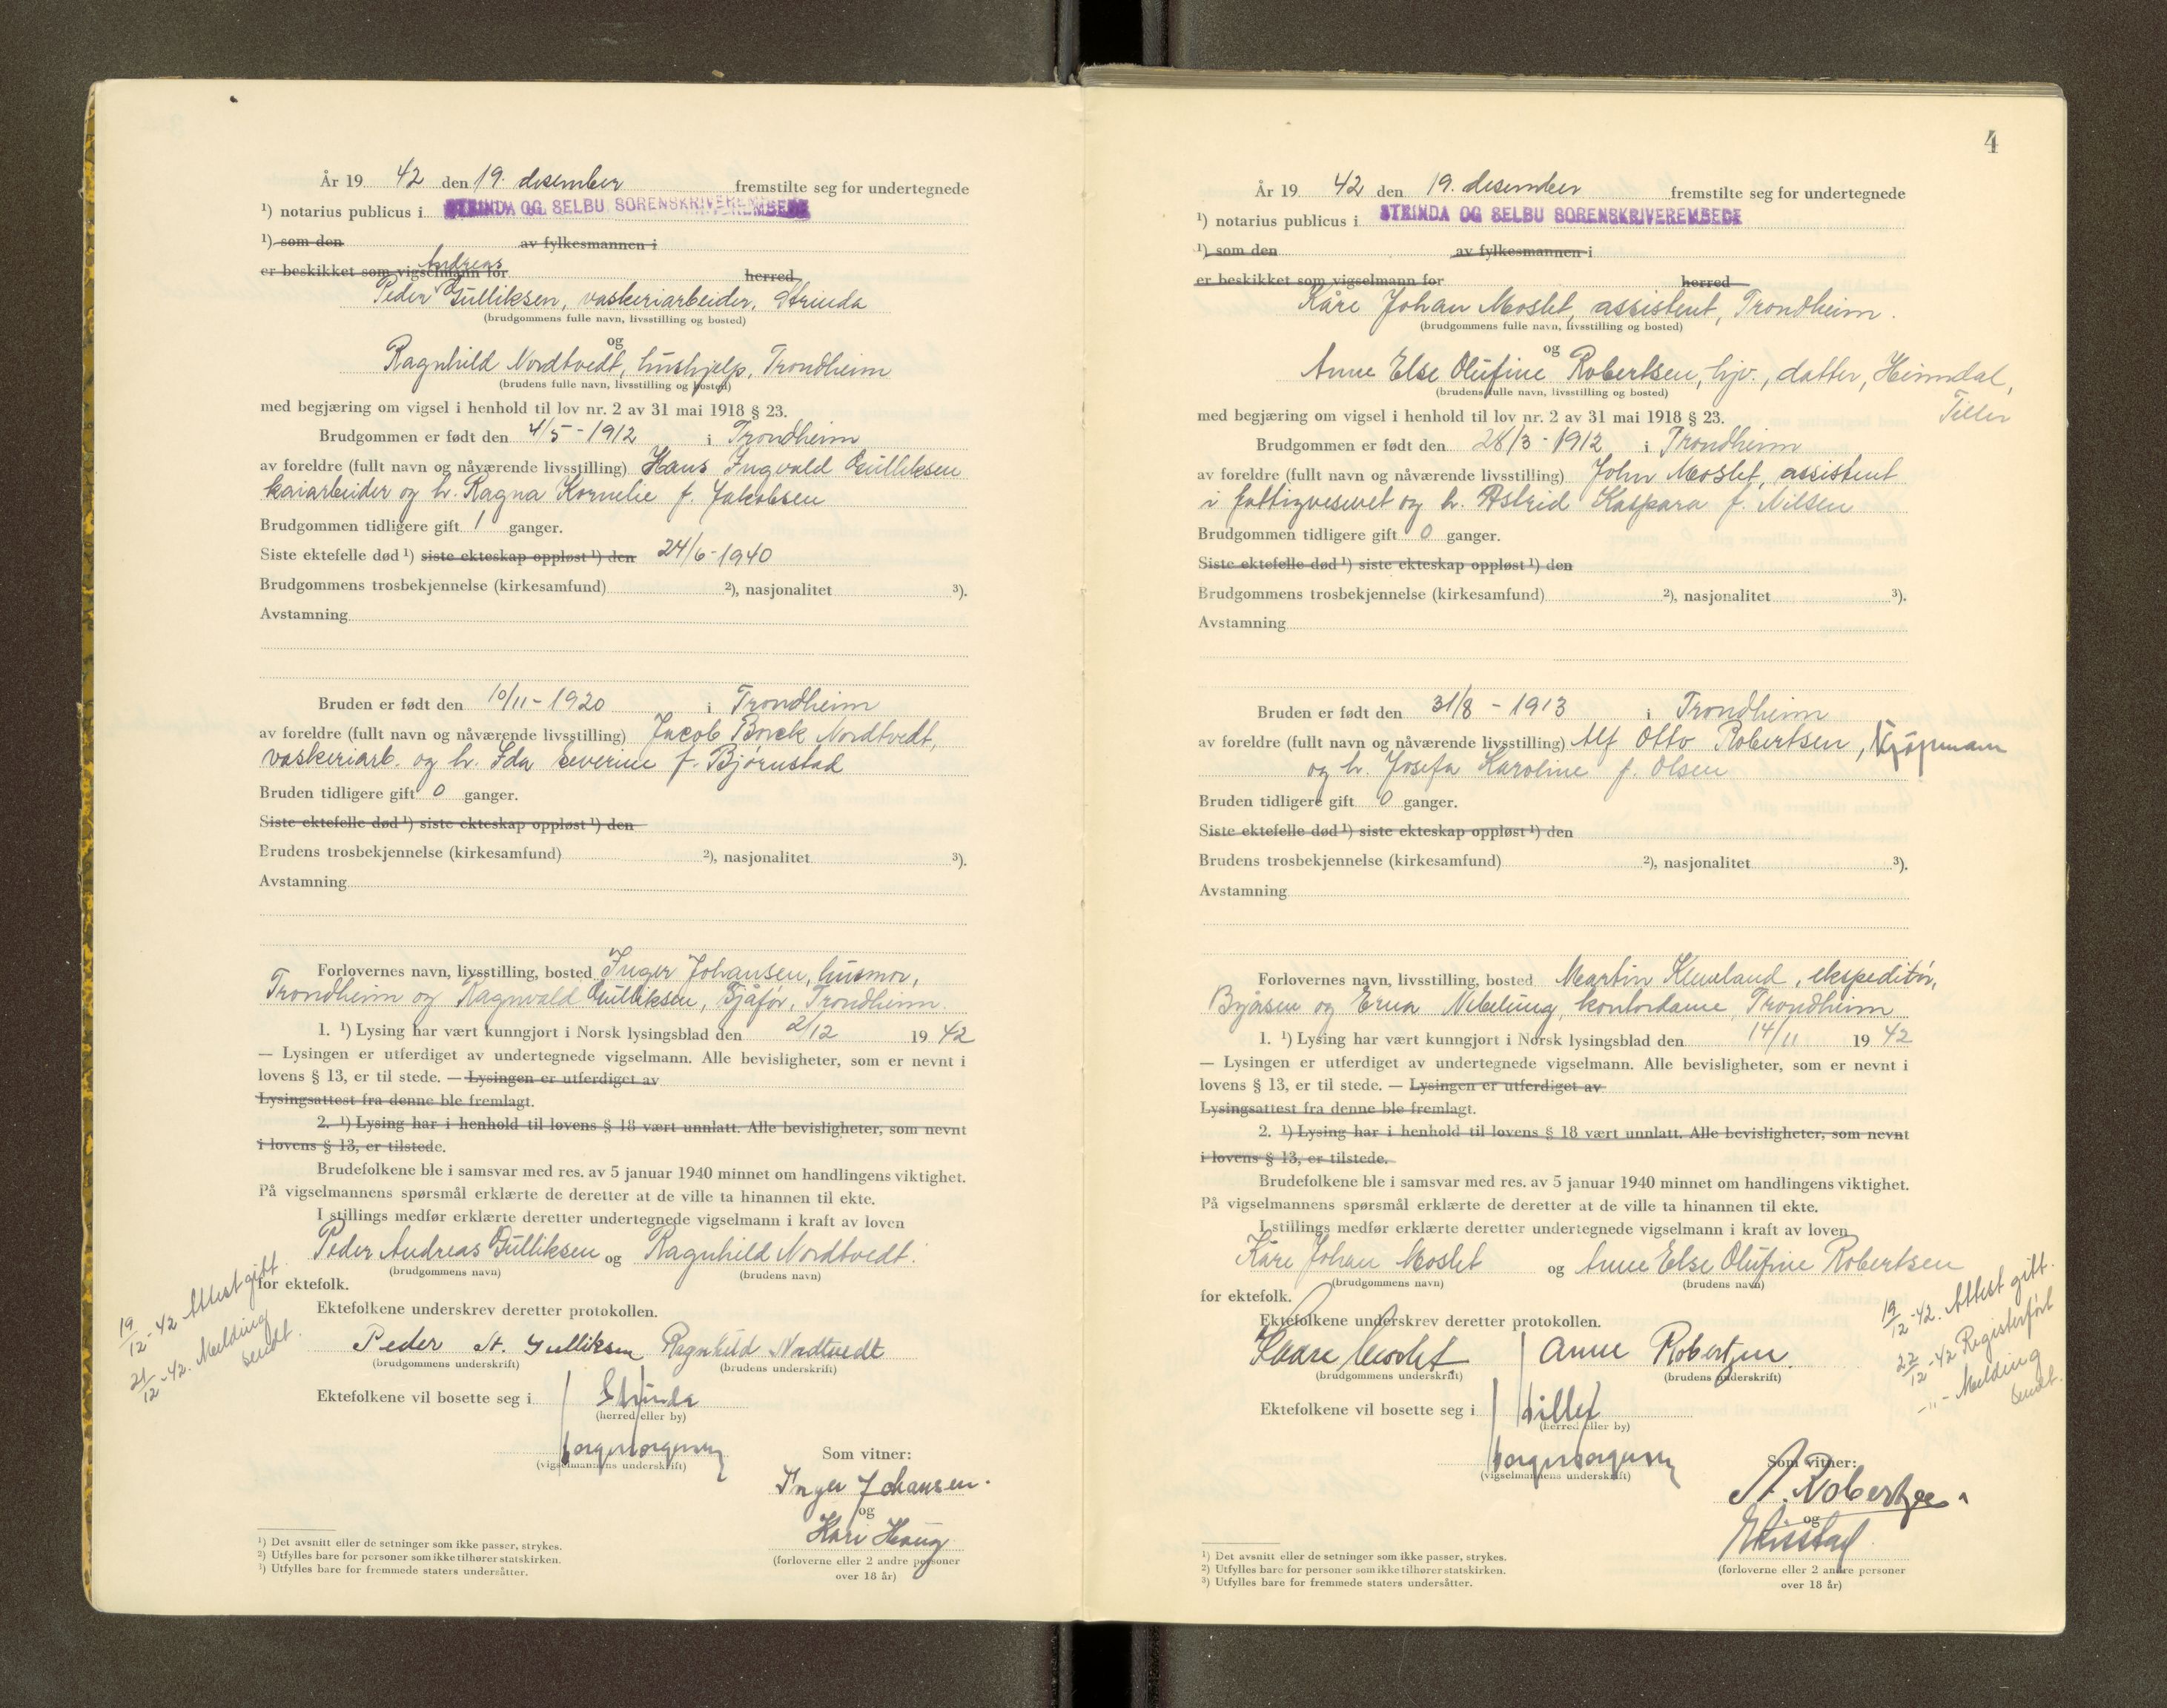 År 19 42 den 19. desember fremstilte seg for undertegnede
¹) notarius publicus i STRINDA OG SELBU SORENSKRIVEREMBEDE
¹) som den av fylkesmannen i
er beskikket som vigselmann for herred
Andreas
Peder Gulliksen, vaskeriarbeider, Strinda
(brudgommens fulle navn, livsstilling og bosted)
og
Ragnhild Nordtvedt, hushjelp, Trondheim
(brudens fulle navn, livsstilling og bosted)
med begjæring om vigsel i henhold til lov nr. 2 av 31 mai 1918 § 23.
Brudgommen er født den 4/5 - 1912 i Trondheim
av foreldre (fullt navn og nåværende livsstilling) Hans Ingvald Gulliksen
kaiarbeider og h. Ragna Kornelie f. Jakobsen
Brudgommen tidligere gift 1 ganger.
Siste ektefelle død ¹) siste ekteskap oppløst ¹) den 24/6-1940
Brudgommens trosbekjennelse (kirkesamfund) ²), nasjonalitet ³).
Avstamning
Bruden er født den 10/11 - 1920 i Trondheim
av foreldre (fullt navn og nåværende livsstilling) Jacob Borck Nordtvedt,
vaskeriarb. og h. Ida Severine f. Bjørnstad
Bruden tidligere gift 0 ganger.
Siste ektefelle død ¹) siste ekteskap oppløst ¹) den
Brudens trosbekjennelse (kirkesamfund) ²), nasjonalitet ³).
Avstamning
Forlovernes navn, livsstilling, bosted Inger Johansen, husmor,
Trondheim og Ragnvald Gulliksen, Sjåfør, Trondheim.
1. ¹) Lysing har vært kunngjort i Norsk lysingsblad den 2/12 19 42
— Lysingen er utferdiget av undertegnede vigselmann. Alle bevisligheter, som er nevnt i
lovens § 13, er til stede. — Lysingen er utferdiget av
Lysingsattest fra denne ble fremlagt.
2. ¹) Lysing har i henhold til lovens § 18 vært unnlatt. Alle bevisligheter, som nevnt
i lovens § 13, er tilstede.
Brudefolkene ble i samsvar med res. av 5 januar 1940 minnet om handlingens viktighet.
På vigselmannens spørsmål erklærte de deretter at de ville ta hinannen til ekte.
I stillings medfør erklærte deretter undertegnede vigselmann i kraft av loven
Peder Andreas Gulliksen og Ragnhild Nordtvedt.
(brudgommens navn) (brudens navn)
for ektefolk.
19/12-42 Attest gitt
21/12-42. Melding
sendt.
Ektefolkene underskrev deretter protokollen.
Peder A. Gulliksen Ragnhild Nordtvedt
(brudgommens underskrift) (brudens underskrift)
Ektefolkene vil bosette seg i Strinda
(herred eller by)
(vigselmannens underskrift)
Som vitner:
Inger Johansen.
og
Kari Haug
(forloverne eller 2 andre personer
over 18 år)
¹) Det avsnitt eller de setninger som ikke passer, strykes.
²) Utfylles bare for personer som ikke tilhører statskirken.
³) Utfylles bare for fremmede staters undersåtter.
4
År 19 42 den 19. desember fremstilte seg for undertegnede
¹) notarius publicus i STRINDA OG SELBU SORENSKRIVEREMBEDE
¹) som den av fylkesmannen i
er beskikket som vigselmann for herred
Kåre Johan Moslet, assistent, Trondheim.
(brudgommens fulle navn, livsstilling og bosted)
og
Anne Else Olufine Robertsen, hjv., datter, Heimdal,
Tiller
(brudens fulle navn, livsstilling og bosted)
med begjæring om vigsel i henhold til lov nr. 2 av 31 mai 1918 § 23.
Brudgommen er født den 28/3 - 1912 i Trondheim
av foreldre (fullt navn og nåværende livsstilling) John Moslet, assistent
i fattigvesenet og h. Astrid Kaspara f. Nilsen
Brudgommen tidligere gift 0 ganger.
Siste ektefelle død ¹) siste ekteskap oppløst ¹) den
Brudgommens trosbekjennelse (kirkesamfund) ²), nasjonalitet ³).
Avstamning
Bruden er født den 31/8 - 1913 i Trondheim
av foreldre (fullt navn og nåværende livsstilling) Alf Otto Robertsen, Kjøpmann
og h. Josefa Karoline f. Olsen
Bruden tidligere gift 0 ganger.
Siste ektefelle død ¹) siste ekteskap oppløst ¹) den
Brudens trosbekjennelse (kirkesamfund) ²), nasjonalitet ³).
Avstamning
Forlovernes navn, livsstilling, bosted Martin Klemland, ekspeditør,
Byåsen og Erna Nebelung, kontordame, Trondheim
1. ¹) Lysing har vært kunngjort i Norsk lysingsblad den 14/11 19 42
— Lysingen er utferdiget av undertegnede vigselmann. Alle bevisligheter, som er nevnt i
lovens § 13, er til stede. — Lysingen er utferdiget av
Lysingsattest fra denne ble fremlagt.
2. ¹) Lysing har i henhold til lovens § 18 vært unnlatt. Alle bevisligheter, som nevnt
i lovens § 13, er tilstede.
Brudefolkene ble i samsvar med res. av 5 januar 1940 minnet om handlingens viktighet.
På vigselmannens spørsmål erklærte de deretter at de ville ta hinannen til ekte.
I stillings medfør erklærte deretter undertegnede vigselmann i kraft av loven
Kåre Johan Moslet og Anne Else Olufine Robertsen
(brudgommens navn) (brudens navn)
for ektefolk.
19/12-42. Attest gitt.
22/12-42 Registerført
-"- Melding
sendt.
Ektefolkene underskrev deretter protokollen.
Kaare Moslet Anne Robertsen.
(brudgommens underskrift) (brudens underskrift)
Ektefolkene vil bosette seg i Tiller
(herred eller by)
(vigselmannens underskrift)
Som vitner:
A. Robertsen
og
(forloverne eller 2 andre personer
over 18 år)
¹) Det avsnitt eller de setninger som ikke passer, strykes.
²) Utfylles bare for personer som ikke tilhører statskirken.
³) Utfylles bare for fremmede staters undersåtter.